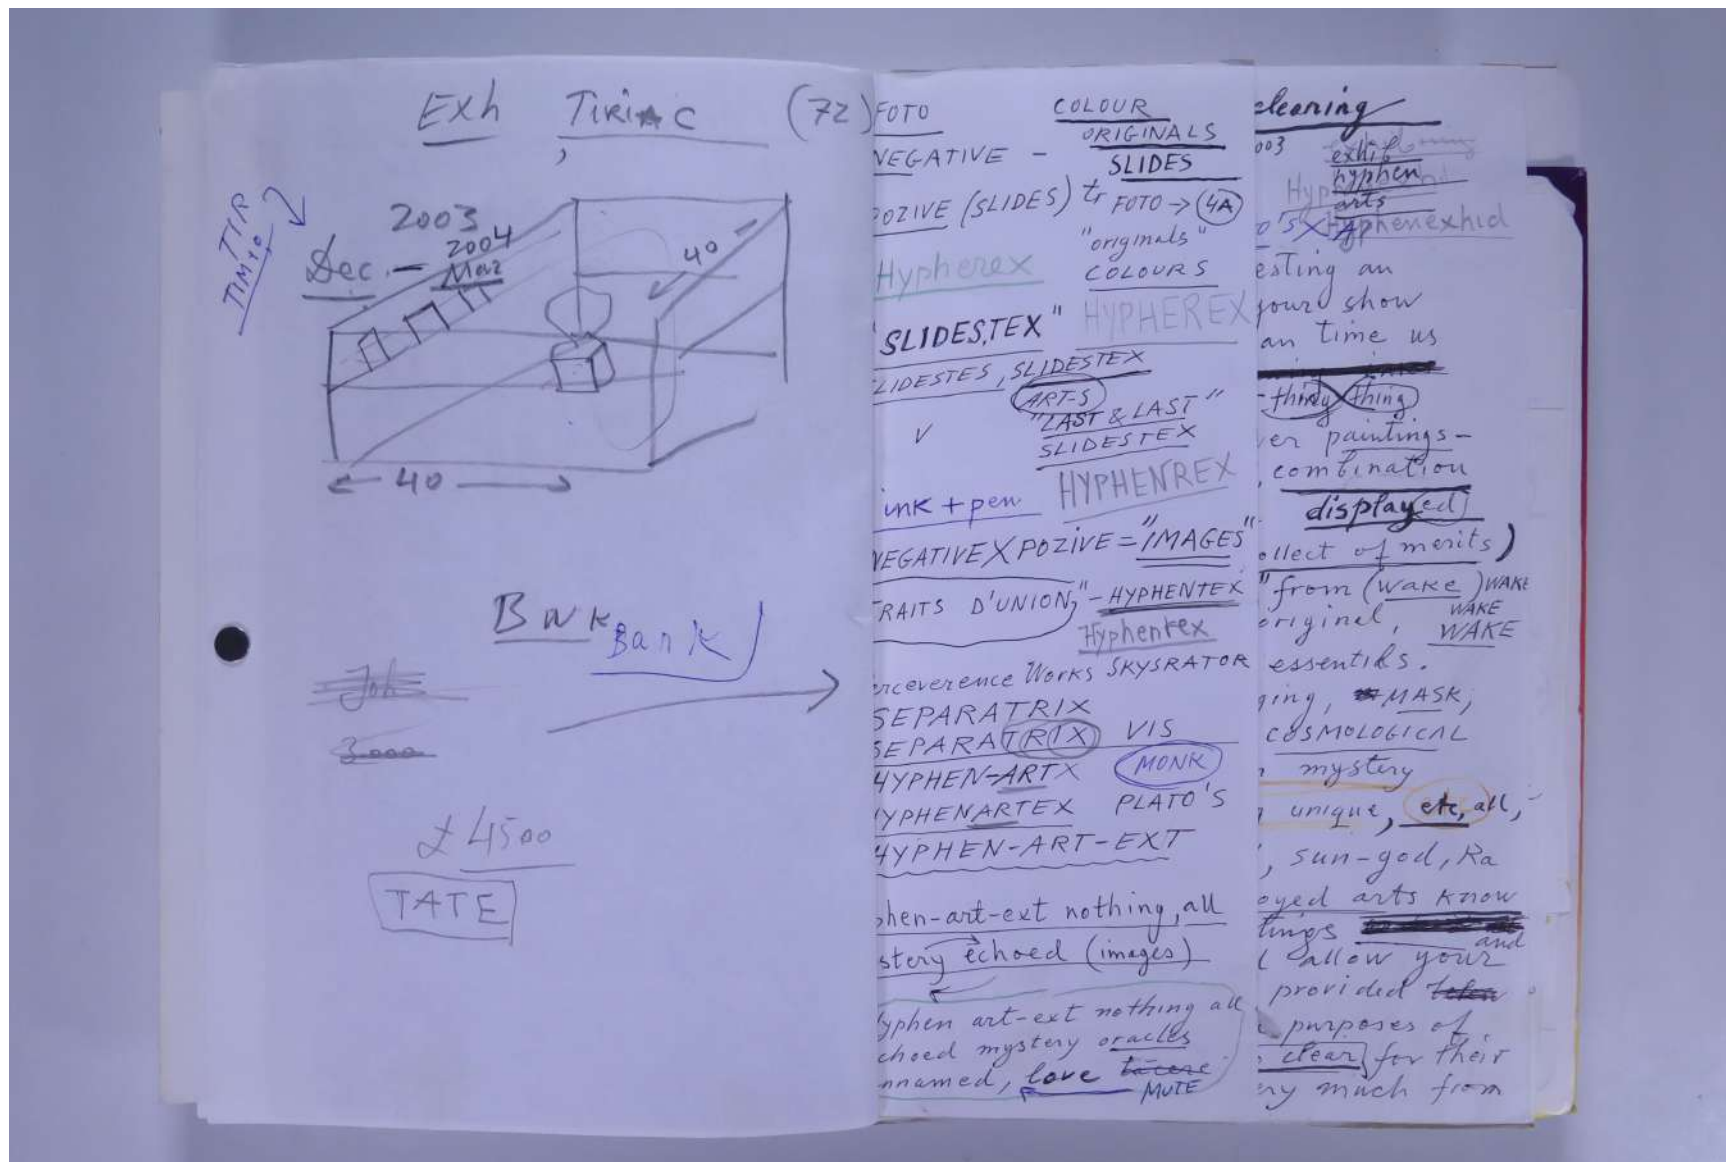 Exh TIRIAC (72)
TIR
TIMIO
2003
Dec. — 2004
Mar
40
40
BNK
Bank
Joh
3.000
£4500
TATE
FOTO COLOUR
ORIGINALS
NEGATIVE - SLIDES
POZIVE (SLIDES) tr FOTO → 4A
"originals"
Hypherex COLOURS
HYPHEREX
"SLIDES,TEX"
LIDESTES, SLIDESTEX
ART-S
V "LAST & LAST"
SLIDESTEX
ink + pen HYPHENREX
NEGATIVE X POZIVE = "IMAGES"
TRAITS D'UNION," - HYPHENTEX
Hyphenrex
erceverence Works SKYSRATOR
SEPARATRIX
SEPARATRIX VIS
HYPHEN-ARTX MONK
HYPHENARTEX PLATO'S
HYPHEN-ART-EXT
phen-art-ext nothing, all
stery echoed (images)
yphen art-ext nothing all
choed mystery oracles
nnamed, love
MUTE
cleaning
003 exhib
hyphen
arts
O'S X Hyphenexhid
esting an
your show
an time us
-thing thing
er paintings-
combination
displayed
ollect of merits)
" from (wake) WAKE
WAKE
original, WAKE
essentils.
ging, MASK,
COSMOLOGICAL
mystery
unique, etc, all,
, sun-god, Ra
oyed arts know
tings
and
l allow your
provided
purposes of
clear for their
ery much from